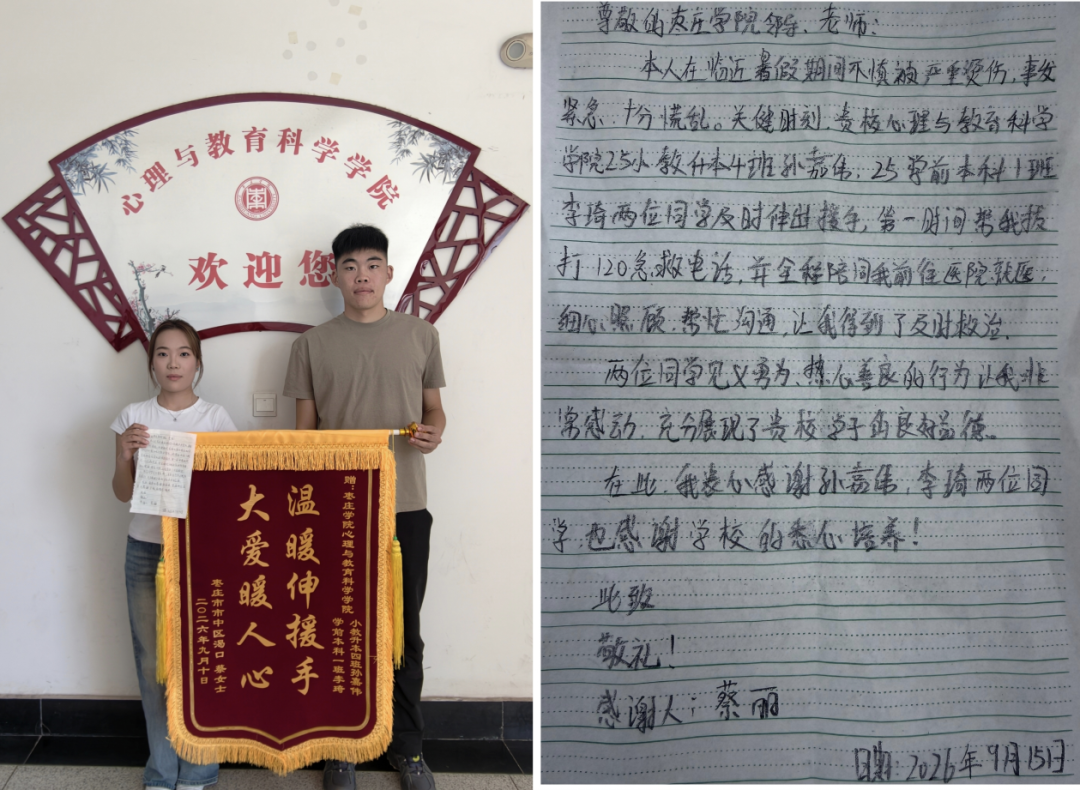 心理与教育科学学院
欢迎您
赠：枣庄学院心理与教育科学学院
小教升本四班孙嘉伟
学前本科一班李琦
温暖伸援手
大爱暖人心
枣庄市市中区渴口 蔡女士
二〇二六年九月十日
尊敬的枣庄学院领导、老师：
本人在临近暑假期间不慎被严重烫伤，事发
紧急、十分慌乱。关健时刻，贵校心理与教育科学
学院25小教升本4班孙嘉伟，25学前本科1班
李琦两位同学及时伸出援手，第一时间帮我拨
打120急救电话，并全程陪同我前往医院就医，
细心照顾、帮忙沟通，让我得到了及时救治。
两位同学见义勇为、热心善良的行为让我非
常感动，充分展现了贵校学子的良好品德。
在此，我衷心感谢孙嘉伟，李琦两位同
学，也感谢学校的悉心培养！
此致
敬礼！
感谢人：蔡丽
日期：2026年9月15日